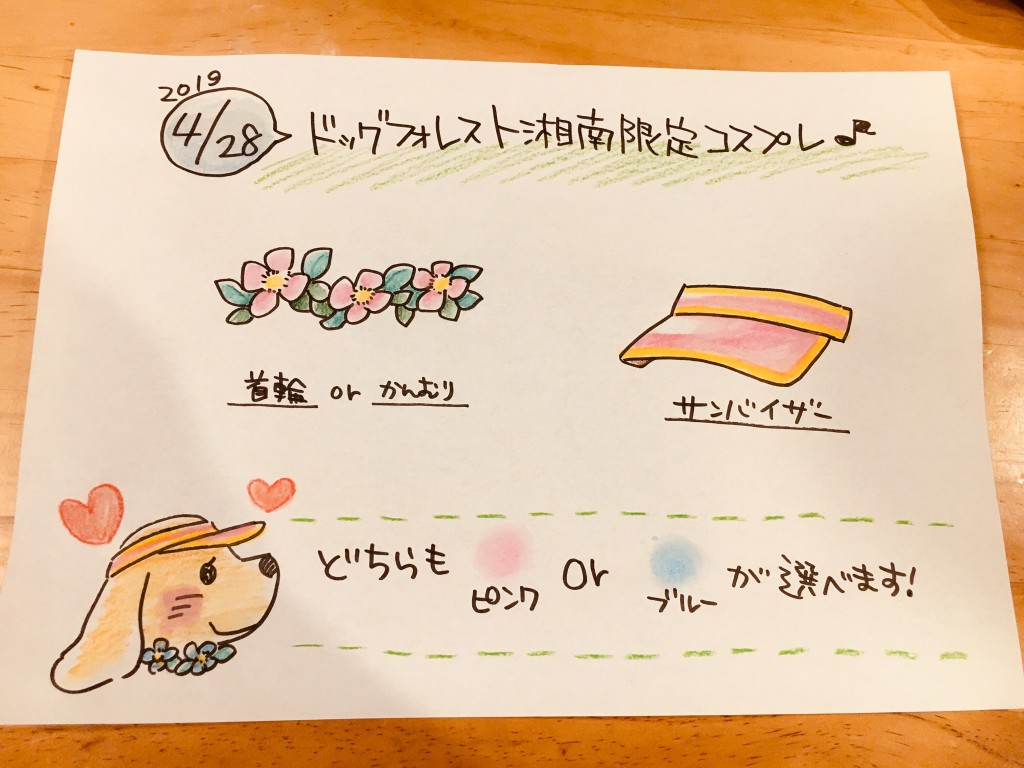 2019
4/28
ドッグフォレスト湘南限定コスプレ♪
首輪 or かんむり
サンバイザー
どちらも ピンク or ブルー が選べます!